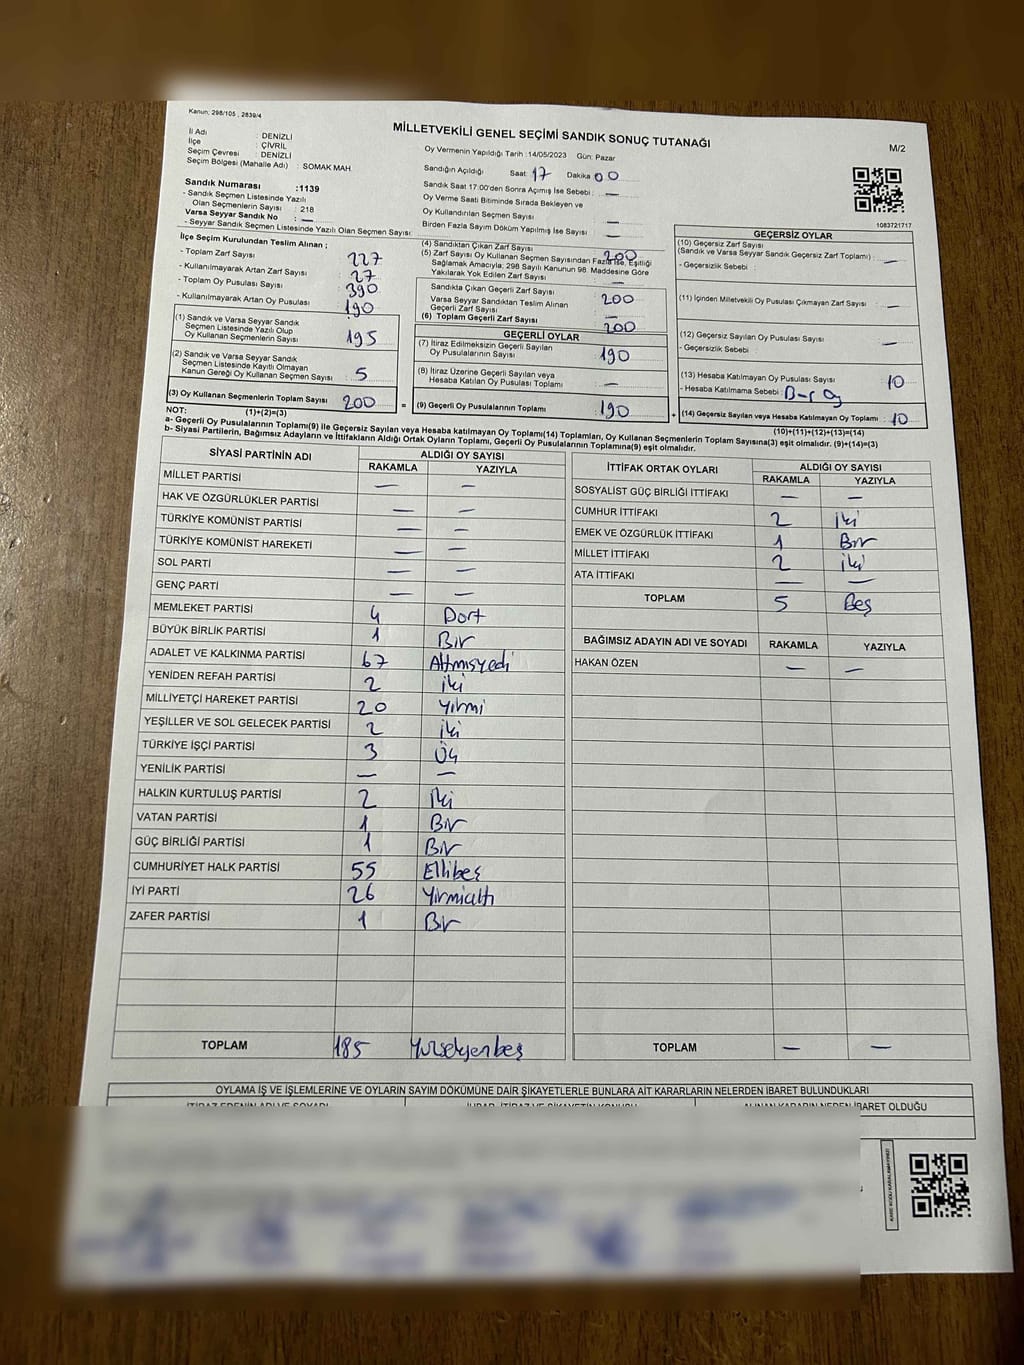 Kanun: 298/105 , 2839/4
MİLLETVEKİLİ GENEL SEÇİMİ SANDIK SONUÇ TUTANAĞI
M/2
İl Adı : DENİZLİ
İlçe : ÇİVRİL
Seçim Çevresi : DENİZLİ
Seçim Bölgesi (Mahalle Adı) : SOMAK MAH
Oy Vermenin Yapıldığı Tarih :14/05/2023 Gün: Pazar
Sandığın Açıldığı Saat: 17 Dakika 00
Sandık Saat 17:00'den Sonra Açımış İse Sebebi : —
Oy Verme Saati Bitiminde Sırada Bekleyen ve
Oy Kullandırılan Seçmen Sayısı —
Birden Fazla Sayım Döküm Yapılmış İse Sayısı : —
1083721717
Sandık Numarası :1139
- Sandık Seçmen Listesinde Yazılı
Olan Seçmenlerin Sayısı : 218
Varsa Seyyar Sandık No : —
- Seyyar Sandık Seçmen Listesinde Yazılı Olan Seçmen Sayısı:
İlçe Seçim Kurulundan Teslim Alınan ;
- Toplam Zarf Sayısı 227
- Kullanılmayarak Artan Zarf Sayısı 27
- Toplam Oy Pusulası Sayısı 390
- Kullanılmayarak Artan Oy Pusulası 190
(1) Sandık ve Varsa Seyyar Sandık
Seçmen Listesinde Yazılı Olup
Oy Kullanan Seçmenlerin Sayısı 195
(2) Sandık ve Varsa Seyyar Sandık
Seçmen Listesinde Kayıtlı Olmayan
Kanun Gereği Oy Kullanan Seçmen Sayısı 5
(3) Oy Kullanan Seçmenlerin Toplam Sayısı 200 =
(1)+(2)=(3)
(4) Sandıktan Çıkan Zarf Sayısı 200
(5) Zarf Sayısı Oy Kullanan Seçmen Sayısından Fazla İse, Eşitliği
Sağlamak Amacıyla; 298 Sayılı Kanunun 98. Maddesine Göre
Yakılarak Yok Edilen Zarf Sayısı —
Sandıkta Çıkan Geçerli Zarf Sayısı 200
Varsa Seyyar Sandıktan Teslim Alınan
Geçerli Zarf Sayısı —
(6) Toplam Geçerli Zarf Sayısı 200
GEÇERLİ OYLAR
(7) İtiraz Edilmeksizin Geçerli Sayılan
Oy Pusulalarının Sayısı 190
(8) İtiraz Üzerine Geçerli Sayılan veya
Hesaba Katılan Oy Pusulası Toplamı —
(9) Geçerli Oy Pusulalarının Toplamı 190 +
GEÇERSİZ OYLAR
(10) Geçersiz Zarf Sayısı
(Sandık ve Varsa Seyyar Sandık Geçersiz Zarf Toplamı) : —
- Geçersizlik Sebebi :
(11) İçinden Milletvekili Oy Pusulası Çıkmayan Zarf Sayısı —
(12) Geçersiz Sayılan Oy Pusulası Sayısı —
- Geçersizlik Sebebi :
(13) Hesaba Katılmayan Oy Pusulası Sayısı 10
- Hesaba Katılmama Sebebi :
(14) Geçersiz Sayılan veya Hesaba Katılmayan Oy Toplamı : 10
(10)+(11)+(12)+(13)=(14)
NOT:
a- Geçerli Oy Pusulalarının Toplamı(9) ile Geçersiz Sayılan veya Hesaba katılmayan Oy Toplamı(14) Toplamları, Oy Kullanan Seçmenlerin Toplam Sayısına(3) eşit olmalıdır. (9)+(14)=(3)
b- Siyasi Partilerin, Bağımsız Adayların ve İttifakların Aldığı Ortak Oyların Toplamı, Geçerli Oy Pusulalarının Toplamına(9) eşit olmalıdır.
SİYASİ PARTİNİN ADI ALDIĞI OY SAYISI
RAKAMLA YAZIYLA
MİLLET PARTİSİ — —
HAK VE ÖZGÜRLÜKLER PARTİSİ — —
TÜRKİYE KOMÜNİST PARTİSİ — —
TÜRKİYE KOMÜNİST HAREKETİ — —
SOL PARTİ — —
GENÇ PARTİ — —
MEMLEKET PARTİSİ 4 Dort
BÜYÜK BİRLİK PARTİSİ 1 Bir
ADALET VE KALKINMA PARTİSİ 67 Altmışyedi
YENİDEN REFAH PARTİSİ 2 iki
MİLLİYETÇİ HAREKET PARTİSİ 20 Yirmi
YEŞİLLER VE SOL GELECEK PARTİSİ 2 iki
TÜRKİYE İŞÇİ PARTİSİ 3 Üç
YENİLİK PARTİSİ — —
HALKIN KURTULUŞ PARTİSİ 2 iki
VATAN PARTİSİ 1 Bir
GÜÇ BİRLİĞİ PARTİSİ 1 Bir
CUMHURİYET HALK PARTİSİ 55 Ellibeş
İYİ PARTİ 26 Yirmialtı
ZAFER PARTİSİ 1 Bir
TOPLAM 185 Yüzseksenbeş
İTTİFAK ORTAK OYLARI ALDIĞI OY SAYISI
RAKAMLA YAZIYLA
SOSYALİST GÜÇ BİRLİĞİ İTTİFAKI — —
CUMHUR İTTİFAKI 2 iki
EMEK VE ÖZGÜRLÜK İTTİFAKI 1 Bir
MİLLET İTTİFAKI 2 iki
ATA İTTİFAKI — —
TOPLAM 5 Beş
BAĞIMSIZ ADAYIN ADI VE SOYADI RAKAMLA YAZIYLA
HAKAN ÖZEN — —
TOPLAM — —
OYLAMA İŞ VE İŞLEMLERİNE VE OYLARIN SAYIM DÖKÜMÜNE DAİR ŞİKAYETLERLE BUNLARA AİT KARARLARIN NELERDEN İBARET BULUNDUKLARI
İTİRAZ EDENİN ADI VE SOYADI İHBAR, İTİRAZ VE ŞİKAYETİN KONUSU ALINAN KARARIN NEDEN İBARET OLDUĞU
KARE KODU KARALAMAYINIZ!